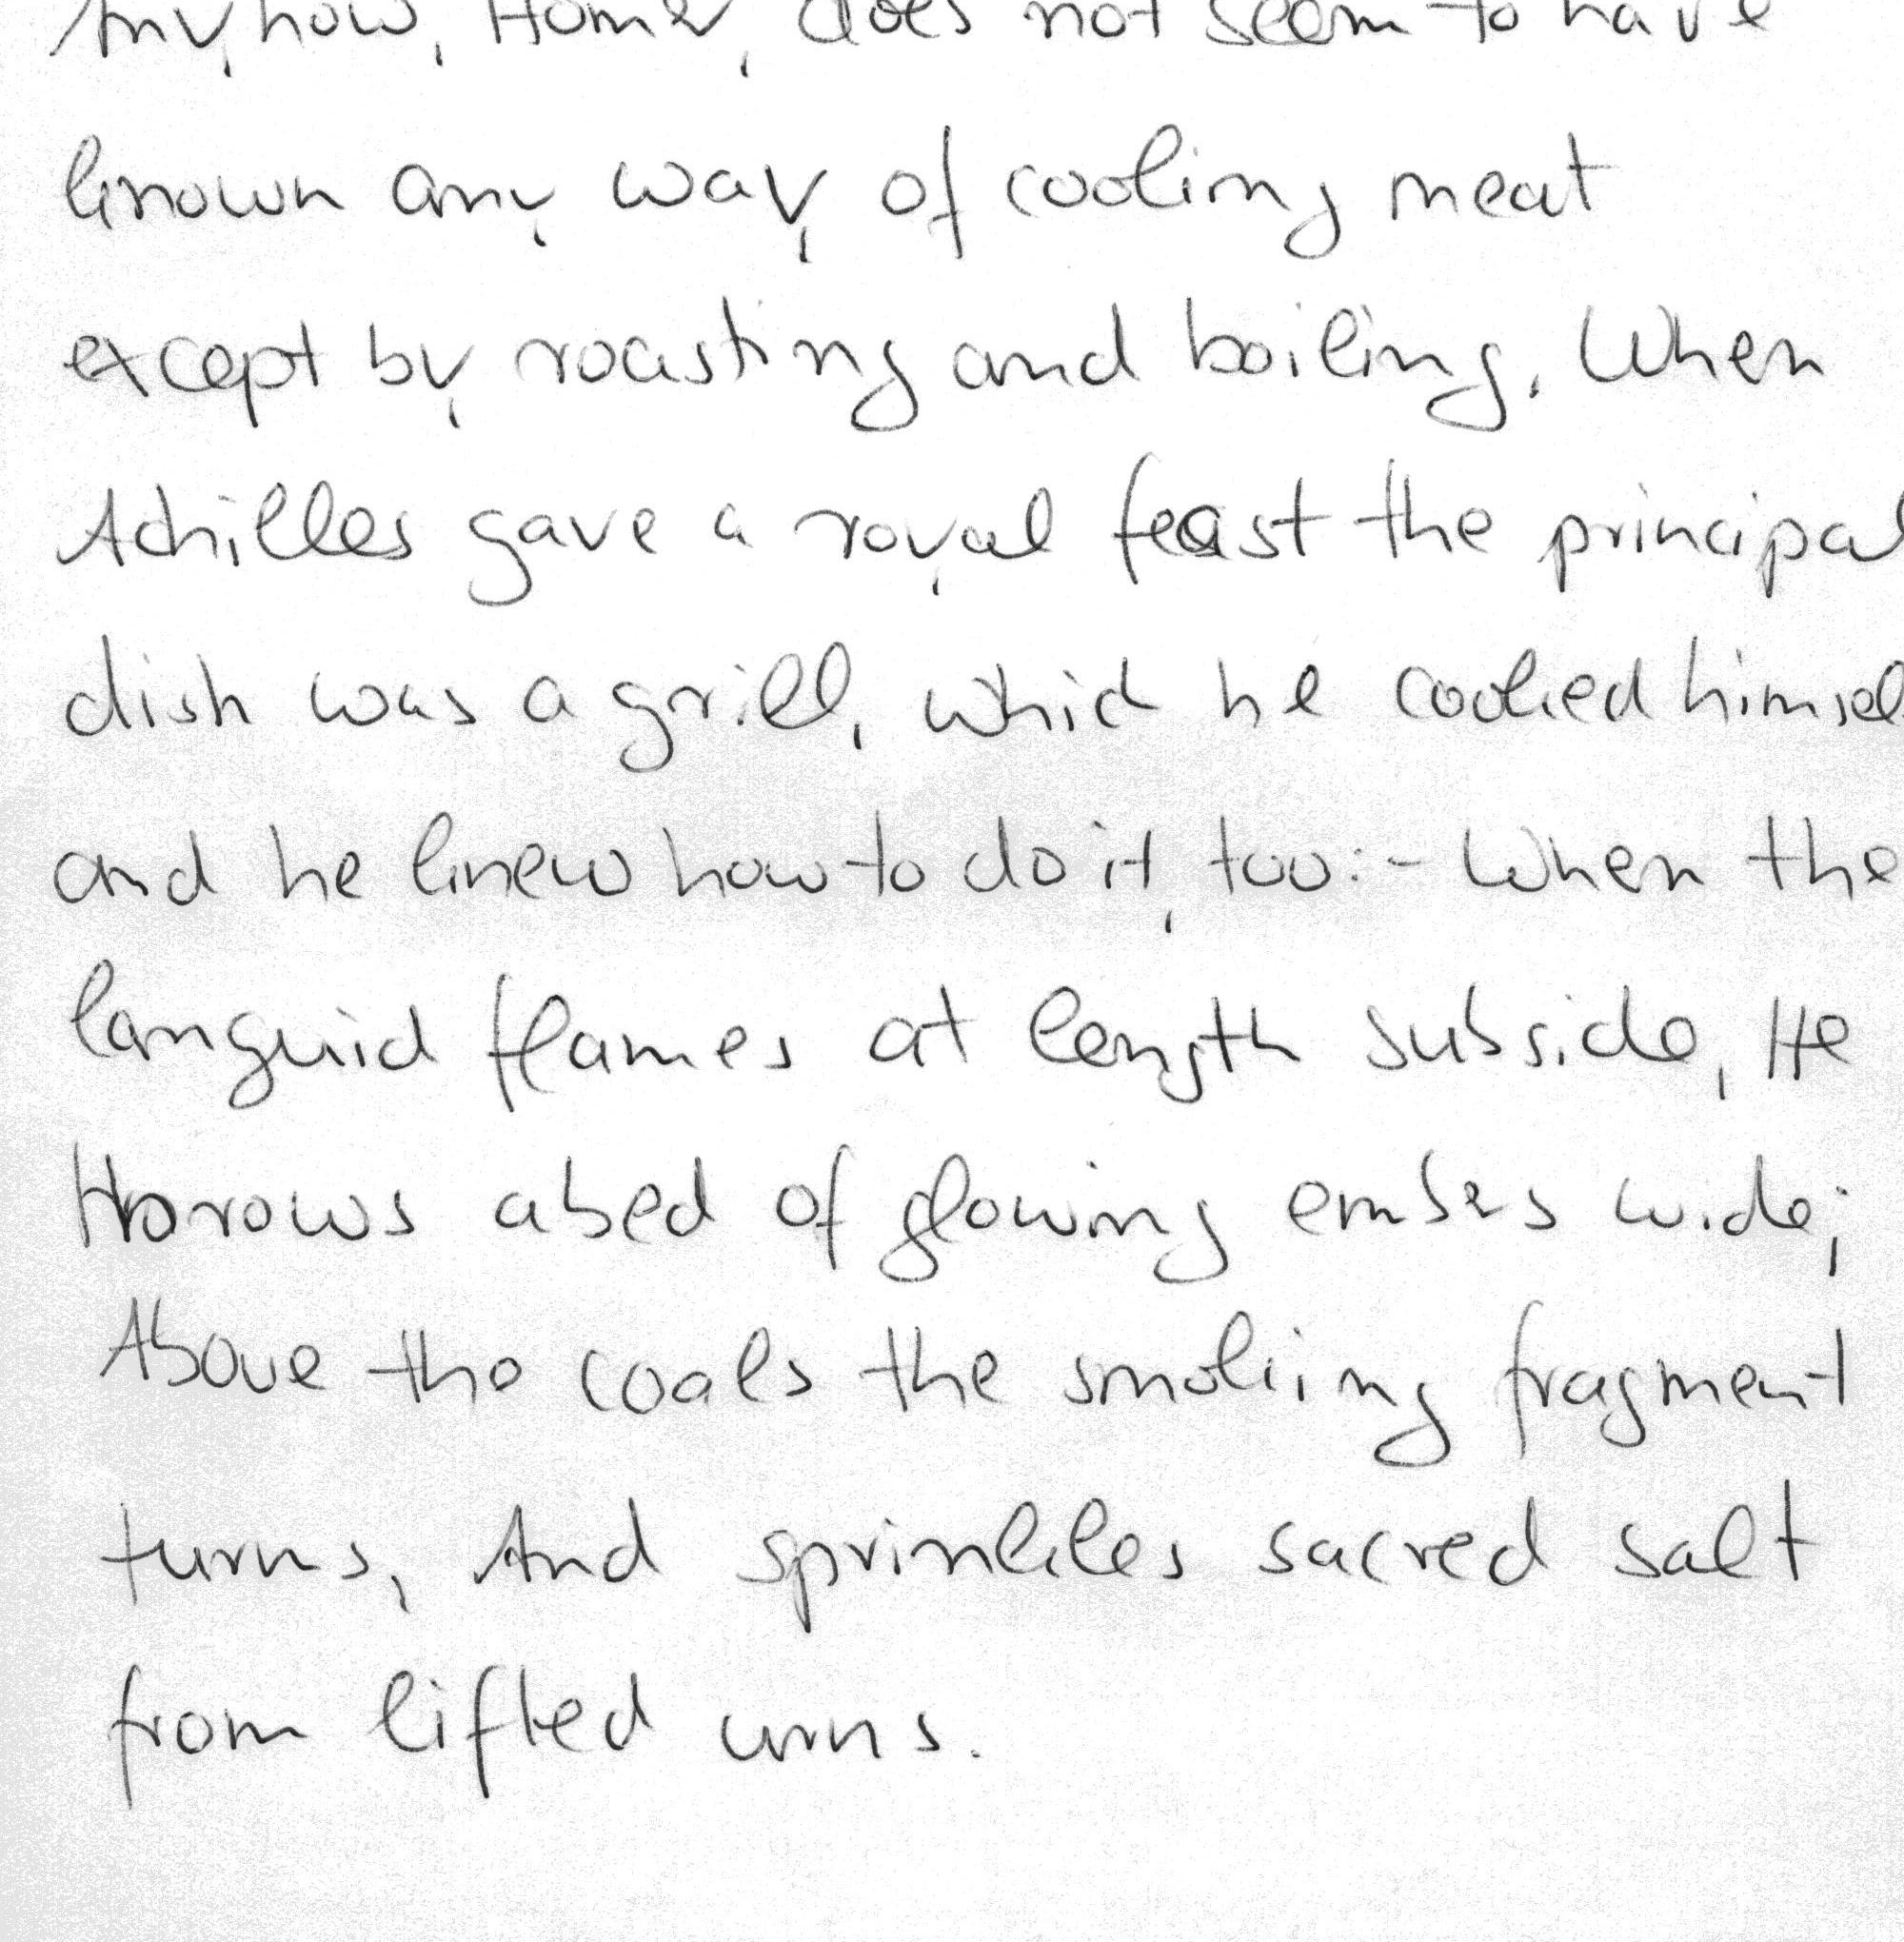 Anyhow, Homer, does not seem to have
known any way of cooking meat
except by roasting and boiling. When
Achilles gave a royal feast the principal
dish was a grill, which he cooked himsel
and he knew how to do it, too:- When the
languid flames at length subside, He
strows a bed of glowing embers wide;
Above the coals the smoking fragment
turns, And sprinkles sacred salt
from lifted urns.